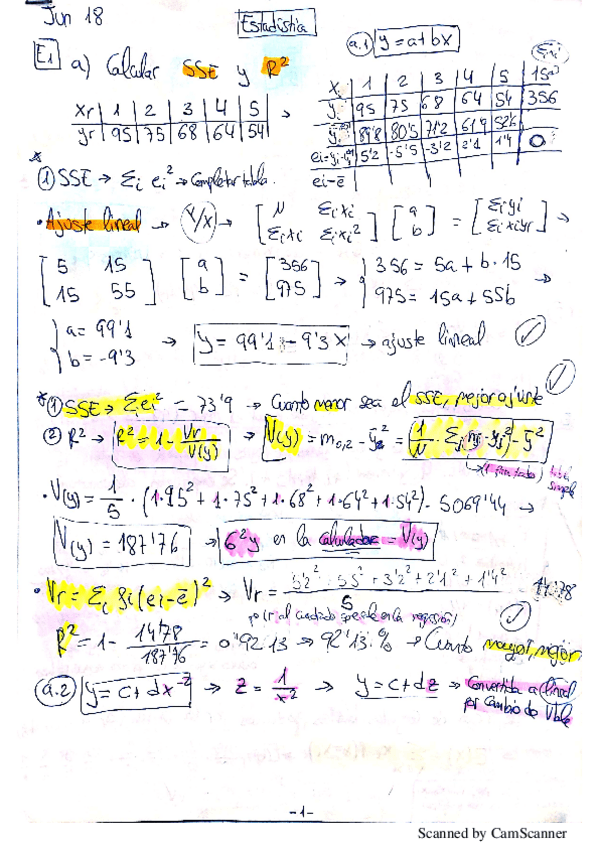 Jun 18
Estadística
E1 a) Calcular SSE y R²
a.1 y = a+bx
xi | 1 | 2 | 3 | 4 | 5 | 15
yi | 95 | 75 | 68 | 64 | 54 | 356
89'8 | 80'5 | 71'2 | 61'9 | 52'6
5'2 | -5'5 | -3'2 | 2'1 | 1'4 | 0
ei-ē
xi | 1 | 2 | 3 | 4 | 5
yi | 95 | 75 | 68 | 64 | 54
* ① SSE → Σi ei² → Completar tabla.
• Ajuste lineal → (Y/X) → [N Σi xi; Σi xi Σi xi²] [a; b] = [Σi yi; Σi xi yi] →
[5 15; 15 55] [a; b] = [356; 975] → { 356 = 5a + b·15; 975 = 15a + 55b →
{ a = 99'1; b = -9'3 → y = 99'1 - 9'3 x → ajuste lineal
* ① SSE → Σi ei² = 73'9 → Cuanto menor sea el SSE, mejor ajuste
② R² → R² = 1 - Vr/V(y) → V(y) = m0,2 - ȳ² = 1/N · Σj nj · yj² - ȳ²
• V(y) = 1/5 · (1·95² + 1·75² + 1·68² + 1·64² + 1·54²) - 5069'44 →
V(y) = 187'76 → σ²y en la calculadora = V(y)
• Vr = Σi fi (ei - ē)² → Vr = 5'2² + 5'5² + 3'2² + 2'1² + 1'4² / 5 = 14'78
R² = 1 - 14'78/187'76 = 0'9213 → 92'13 % → Cuanto mayor, mejor
a.2 y = c + dx⁻² → z = 1/x² → y = c + dz → Convertida a lineal
por cambio de Vble
-1-
Scanned by CamScanner